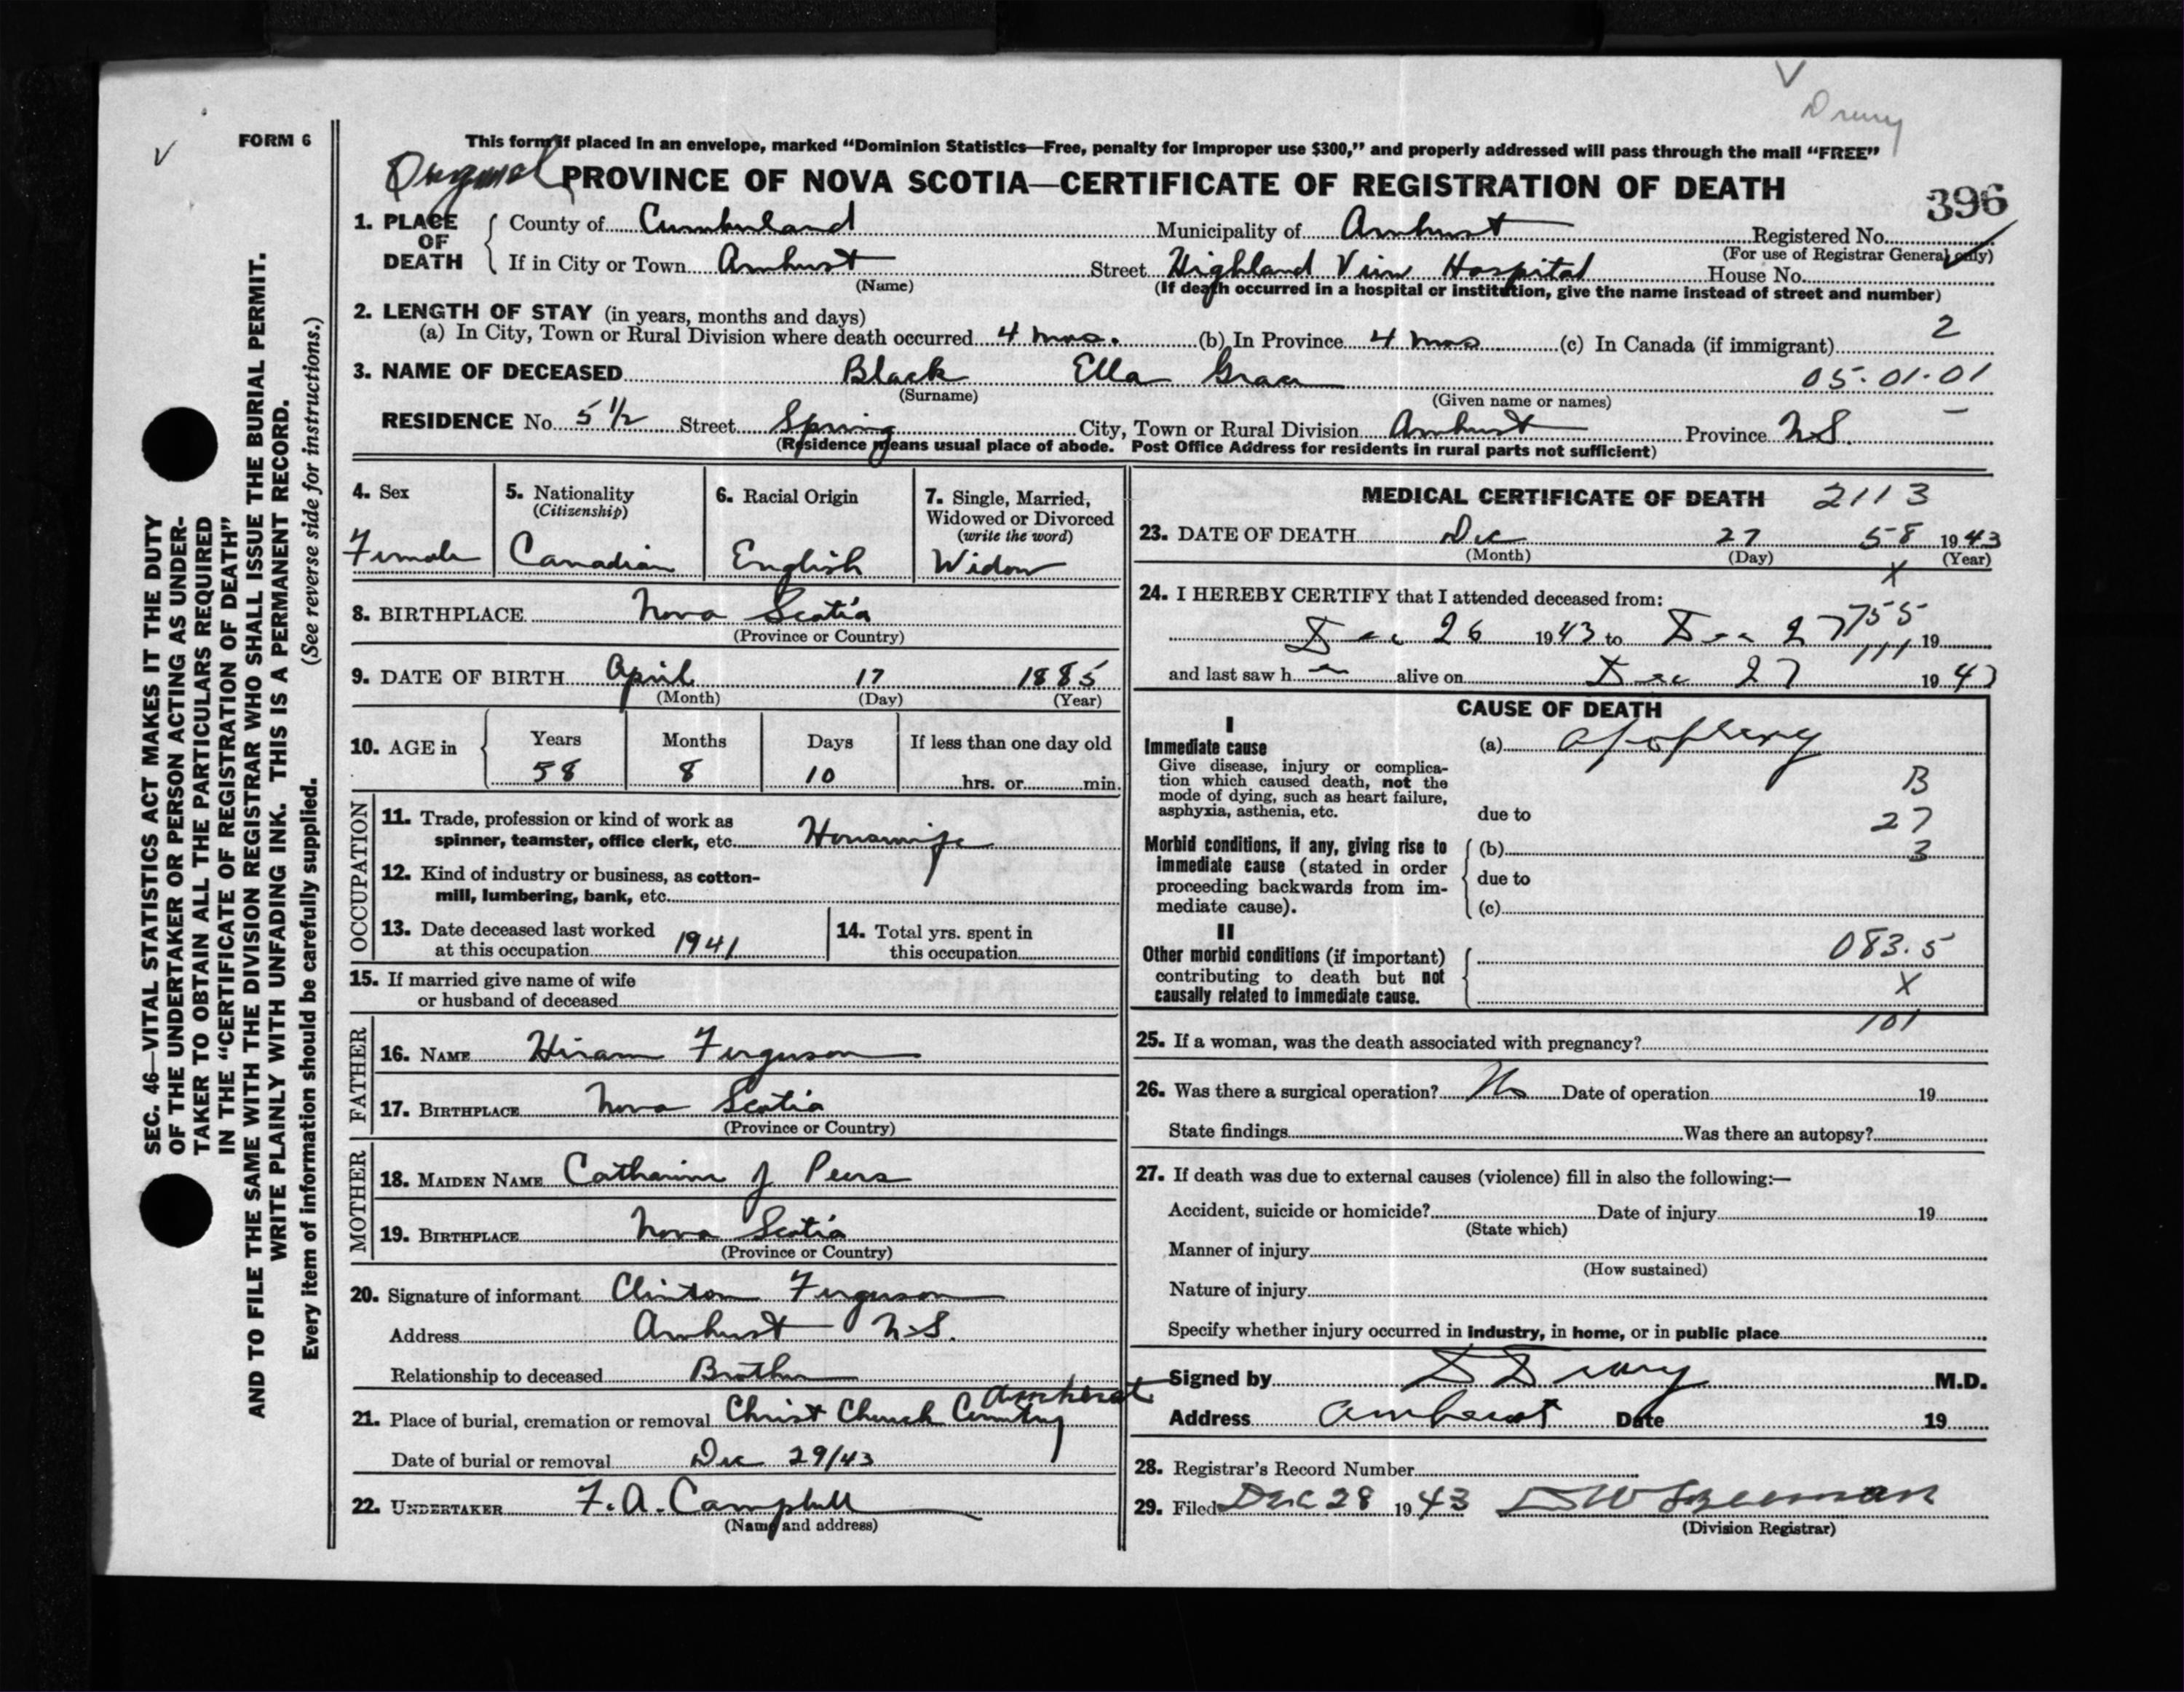 V
Drury
V
FORM 6
This form if placed in an envelope, marked “Dominion Statistics—Free, penalty for improper use $300,” and properly addressed will pass through the mail “FREE”
Original PROVINCE OF NOVA SCOTIA—CERTIFICATE OF REGISTRATION OF DEATH
396
1. PLACE OF DEATH County of Cumberland Municipality of Amherst Registered No.
(For use of Registrar General only)
If in City or Town Amherst Street Highland View Hospital House No.
(Name) (If death occurred in a hospital or institution, give the name instead of street and number)
2. LENGTH OF STAY (in years, months and days)
(a) In City, Town or Rural Division where death occurred 4 mos. (b) In Province 4 mos (c) In Canada (if immigrant) 2
3. NAME OF DECEASED Black Ella Grace 05.01.01
(Surname) (Given name or names)
RESIDENCE No. 5 1/2 Street Spring City, Town or Rural Division Amherst Province N.S.
(Residence means usual place of abode. Post Office Address for residents in rural parts not sufficient)
4. Sex Female
5. Nationality (Citizenship) Canadian
6. Racial Origin English
7. Single, Married, Widowed or Divorced (write the word) Widow
8. BIRTHPLACE Nova Scotia
(Province or Country)
9. DATE OF BIRTH April 17 1885
(Month) (Day) (Year)
10. AGE in Years Months Days If less than one day old
58 8 10 hrs. or min.
OCCUPATION
11. Trade, profession or kind of work as
spinner, teamster, office clerk, etc. Housewife
12. Kind of industry or business, as cotton-
mill, lumbering, bank, etc.
13. Date deceased last worked
at this occupation 1941
14. Total yrs. spent in
this occupation
15. If married give name of wife
or husband of deceased
FATHER
16. NAME Hiram Ferguson
17. BIRTHPLACE Nova Scotia
(Province or Country)
MOTHER
18. MAIDEN NAME Catharine J Peers
19. BIRTHPLACE Nova Scotia
(Province or Country)
20. Signature of informant Clinton Ferguson
Address Amherst N.S.
Relationship to deceased Brother
21. Place of burial, cremation or removal Christ Church Cemetry Amherst
Date of burial or removal Dec 29/43
22. UNDERTAKER F. A. Campbell
(Name and address)
MEDICAL CERTIFICATE OF DEATH 2113
23. DATE OF DEATH Dec 27 58 1943
(Month) (Day) (Year)
X
24. I HEREBY CERTIFY that I attended deceased from:
755
Dec 26 1943 to Dec 27 19
111
and last saw h er alive on Dec 27 1943
CAUSE OF DEATH
I
Immediate cause (a) apoplexy
Give disease, injury or complica-
tion which caused death, not the
mode of dying, such as heart failure,
asphyxia, asthenia, etc.
B
due to 27
Morbid conditions, if any, giving rise to
immediate cause (stated in order
proceeding backwards from im-
mediate cause).
(b) 3
due to
(c)
II
Other morbid conditions (if important)
contributing to death but not
causally related to immediate cause.
083.5
X
101
25. If a woman, was the death associated with pregnancy?
26. Was there a surgical operation? No Date of operation 19
State findings Was there an autopsy?
27. If death was due to external causes (violence) fill in also the following:—
Accident, suicide or homicide? Date of injury 19
(State which)
Manner of injury
(How sustained)
Nature of injury
Specify whether injury occurred in industry, in home, or in public place
Signed by D Drury M.D.
Address Amherst Date 19
28. Registrar's Record Number
29. Filed Dec 28 1943
(Division Registrar)
SEC. 46—VITAL STATISTICS ACT MAKES IT THE DUTY
OF THE UNDERTAKER OR PERSON ACTING AS UNDER-
TAKER TO OBTAIN ALL THE PARTICULARS REQUIRED
IN THE “CERTIFICATE OF REGISTRATION OF DEATH”
AND TO FILE THE SAME WITH THE DIVISION REGISTRAR WHO SHALL ISSUE THE BURIAL PERMIT.
WRITE PLAINLY WITH UNFADING INK. THIS IS A PERMANENT RECORD.
Every item of information should be carefully supplied. (See reverse side for instructions.)